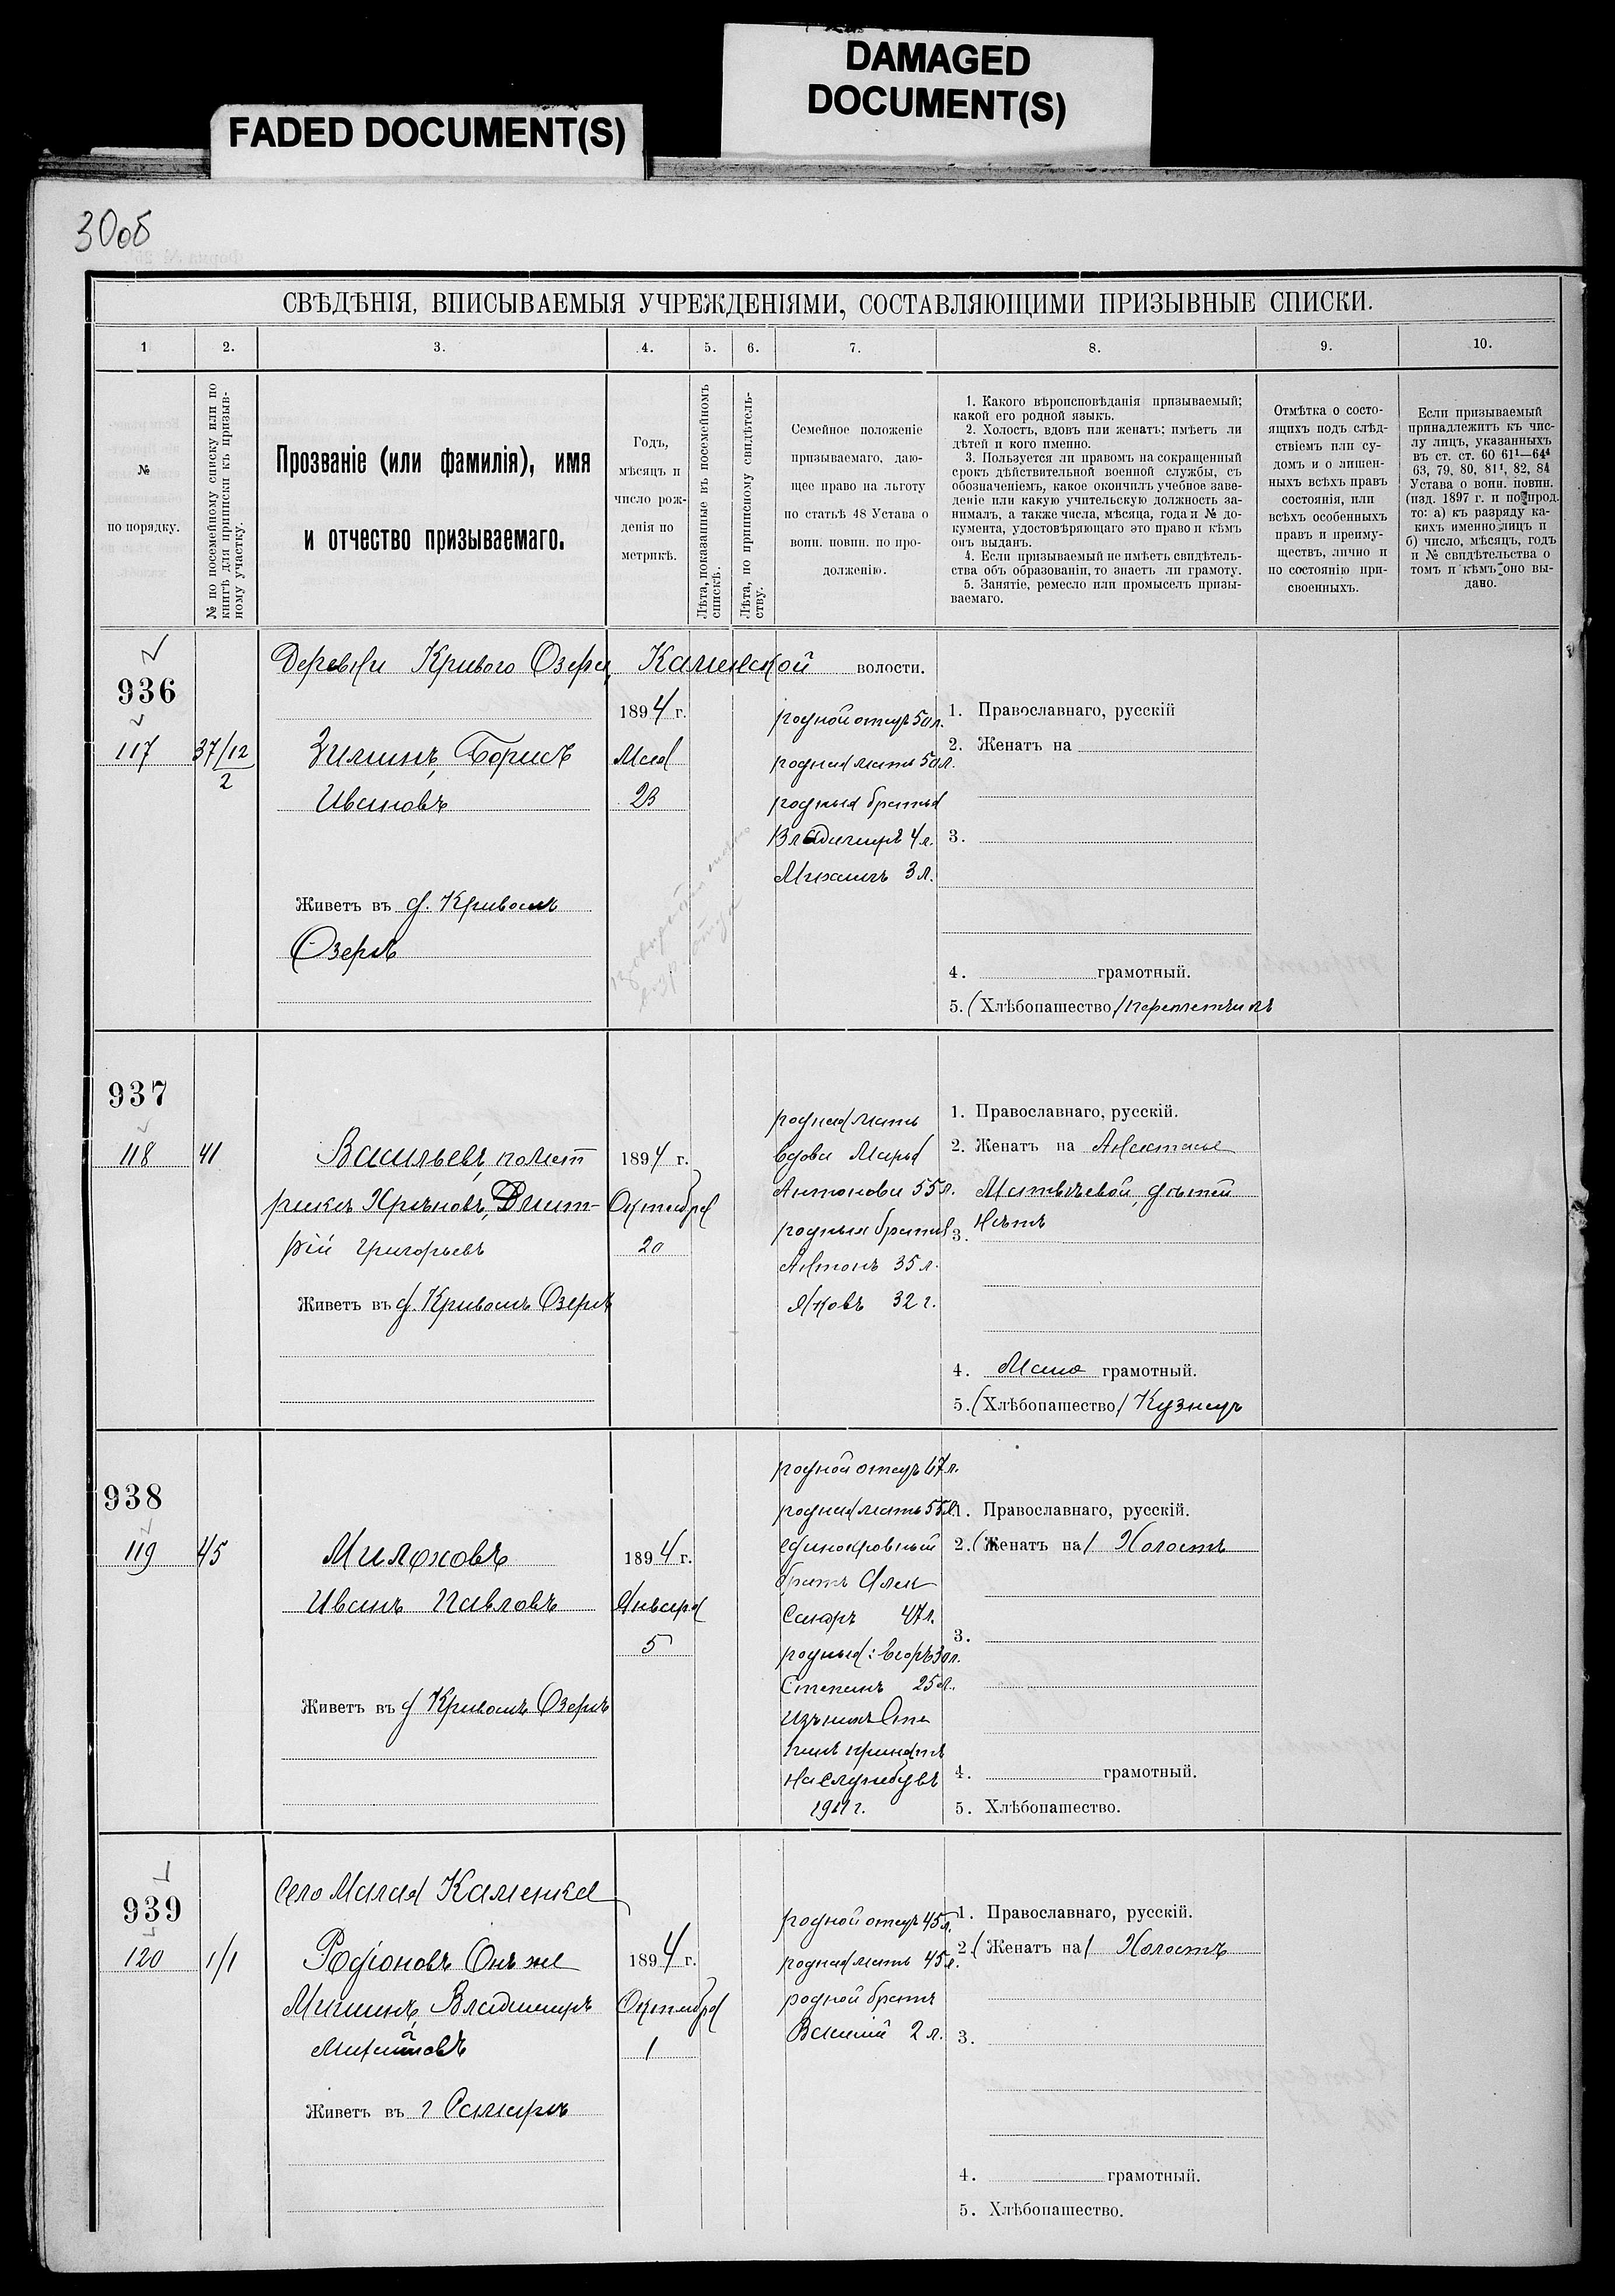 DAMAGED
DOCUMENT(S)
FADED DOCUMENT(S)
30об
СВѢДѢНІЯ, ВПИСЫВАЕМЫЯ УЧРЕЖДЕНІЯМИ, СОСТАВЛЯЮЩИМИ ПРИЗЫВНЫЕ СПИСКИ.
1 2. 3. 4. 5. 6. 7. 8. 9. 10.
№
по порядку.
№ по посемейному списку или по
книгѣ для приписки къ призыв-
ному участку.
Прозваніе (или фамилія), имя
и отчество призываемаго.
Годъ,
мѣсяцъ и
число рож-
денія по
метрикѣ.
Лѣта, показанные въ посемейномъ
спискѣ.
Лѣта, по приписному свидѣтель-
ству.
Семейное положеніе
призываемаго, даю-
щее право на льготу
по статьѣ 48 Устава о
воин. повин. по про-
долженію.
1. Какого вѣроисповѣданія призываемый;
какой его родной языкъ.
2. Холостъ, вдовъ или женатъ; имѣетъ ли
дѣтей и кого именно.
3. Пользуется ли правомъ на сокращенный
срокъ дѣйствительной военной службы, съ
обозначеніемъ, какое окончилъ учебное заве-
деніе или какую учительскую должность за-
нималъ, а также числа, мѣсяца, года и № до-
кумента, удостовѣряющаго это право и кѣмъ
онъ выданъ.
4. Если призываемый не имѣетъ свидѣтель-
ства объ образованіи, то знаетъ ли грамоту.
5. Занятіе, ремесло или промыселъ призы-
ваемаго.
Отмѣтка о состо-
ящихъ подъ слѣд-
ствіемъ или су-
домъ и о лишен-
ныхъ всѣхъ правъ
состоянія, или
всѣхъ особенныхъ
правъ и преиму-
ществъ, лично и
по состоянію при-
своенныхъ.
Если призываемый
принадлежитъ къ чис-
лу лицъ, указанныхъ
въ ст. ст. 60 61¹—64⁴
63, 79, 80, 81¹, 82, 84
Устава о воин. повин.
(изд. 1897 г. и по прод.
то: а) къ разряду ка-
кихъ именно лицъ и
б) число, мѣсяцъ, годъ
и № свидѣтельства о
томъ и кѣмъ оно вы-
дано.
Деревни Кривого Озера, Каменской волости.
936
117 37/12
2
Зилинъ, Борисъ
Ивановъ
1894 г.
Мая
23
родной отецъ 50 л.
родная мать 50 л.
родные братья
Владимиръ 4 л.
Михаилъ 3 л.
1. Православнаго, русскій
2. Женатъ на
3.
Живетъ въ д. Кривомъ
Озерѣ
4. грамотный.
5. (Хлѣбопашество) переплетчикъ
937
118 41
Васильевъ, по мет
рикѣ Хрѣновъ, Дмит-
рій Григорьевъ
1894 г.
Октября
20
родная мать
вдова Марья
Антонова 55 л.
родныя братья
Антонъ 35 л.
Яковъ 32 г.
1. Православнаго, русскій.
2. Женатъ на Анастасіе
Матвѣевой, дѣтей
нѣтъ
3.
Живетъ въ д. Кривомъ Озерѣ
4. Мало грамотный.
5. (Хлѣбопашество) Кузнецъ
938
119 45
Милоховъ
Иванъ Павловъ
1894 г.
Января
5
родной отецъ 67 л.
родная мать 55 л.
единокровный
братъ Алек
сандръ 47 л.
родныя: Егоръ 30 л.
Степанъ 25 л.
изъ нихъ Сте
панъ принятъ
на службу въ
1911 г.
1. Православнаго, русскій.
2. (Женатъ на) Холостъ
3.
Живетъ въ д Кривомъ Озерѣ
4. грамотный.
5. Хлѣбопашество.
Село Малая Каменка
939
120 1/1
Родіоновъ Онъ же
Мишинъ, Владимиръ
1894 г.
Октября
1
родной отецъ 45 л.
родная мать 45 л.
родной братъ
Василій 2 л.
1. Православнаго, русскій.
2. (Женатъ на) Холостъ
3.
Живетъ въ г Самарѣ
4. грамотный.
5. Хлѣбопашество.